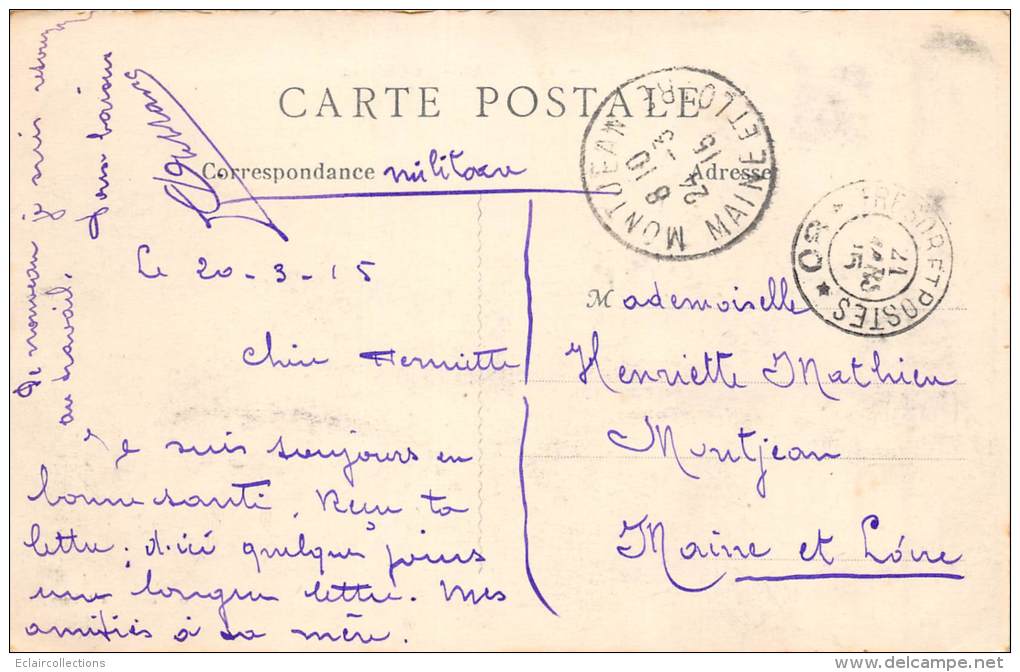 CARTE POSTALE
Correspondance militaire
Adresse
MONTJEAN MAINE ET LOIRE
8 10
24 - 3
15
TRESOR ET POSTES
21
MARS
15
* 80 *
Le 20-3-15
Chère Henriette
Je suis toujours en
bonne santé. Reçu ta
lettre. d'ici quelques jours
une longue lettre. Mes
amitiés à ta mère.
De nouveau je suis
au travail.
Bons baisers
Mademoiselle
Henriette Mathieu
Montjean
Maine et Loire
Eclaircollections
delcampe.net